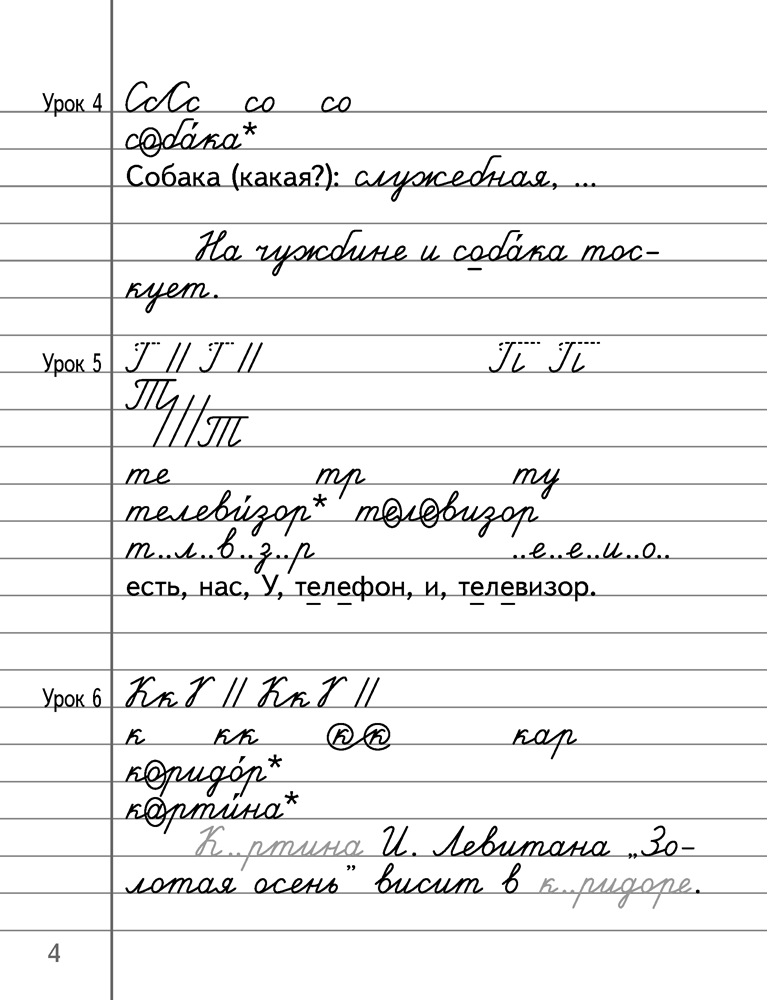 Урок 4 СсСс со со
соба́ка*
Собака (какая?): служебная, ...
На чужбине и соба́ка тос-
кует.
Урок 5 Г // Г // Пι Пι
Т
/// Т
те тр ту
телеви́зор* телевизор
т..л..в..з..р ..е..е..и..о..
есть, нас, У, телефон, и, телевизор.
Урок 6 Кк К // Кк К //
к кк кк кар
коридо́р*
карти́на*
К..ртина И. Левитана „Зо-
лотая осень” висит в к..ридоре.
4